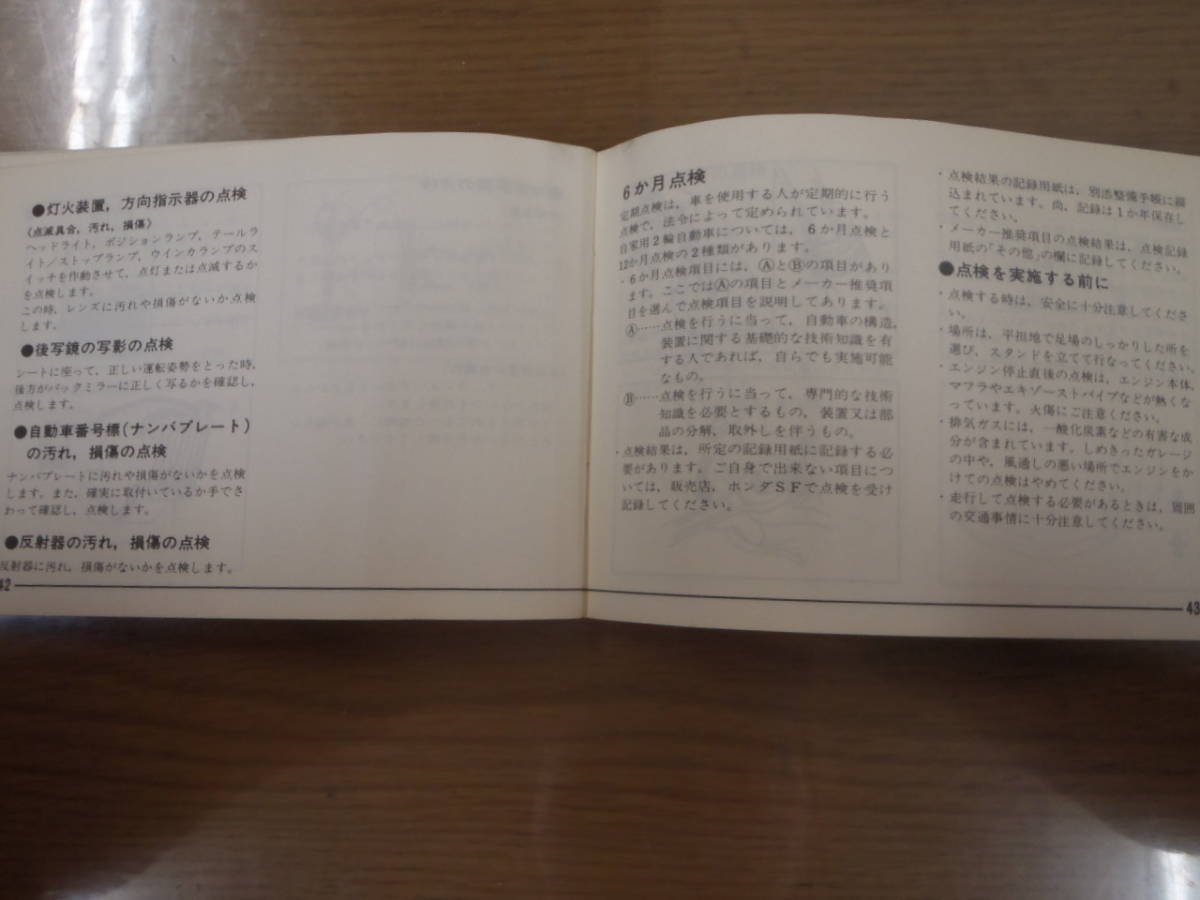 ●灯火装置，方向指示器の点検
〈点滅具合，汚れ，損傷〉
ヘッドライト，ポジションランプ，テールラ
イト/ストップランプ，ウインカランプのス
イッチを作動させて，点灯または点滅するか
を点検します。
この時，レンズに汚れや損傷がないか点検
します。
●後写鏡の写影の点検
シートに座って，正しい運転姿勢をとった時，
後方がバックミラーに正しく写るかを確認し，
点検します。
●自動車番号標(ナンバプレート)
の汚れ，損傷の点検
ナンバプレートに汚れや損傷がないかを点検
します。また，確実に取付いているか手でさ
わって確認し，点検します。
●反射器の汚れ，損傷の点検
反射器に汚れ，損傷がないかを点検します。
42
6か月点検
定期点検は，車を使用する人が定期的に行う
点検で，法令によって定められています。
自家用2輪自動車については，6か月点検と
12か月点検の2種類があります。
・6か月点検項目には，ⒶとⒷの項目があり
ます。ここではⒶの項目とメーカー推奨項
目を選んで点検項目を説明してあります。
Ⓐ……点検を行うに当って，自動車の構造，
装置に関する基礎的な技術知識を有
する人であれば，自らでも実施可能
なもの。
Ⓑ……点検を行うに当って，専門的な技術
知識を必要とするもの，装置又は部
品の分解，取外しを伴うもの。
・点検結果は，所定の記録用紙に記録する必
要があります。ご自身で出来ない項目につ
いては，販売店，ホンダSFで点検を受け
記録してください。
・点検結果の記録用紙は，別添整備手帳に綴
込まれています。尚，記録は1か年保存し
てください。
・メーカー推奨項目の点検結果は，点検記録
用紙の「その他」の欄に記録してください。
●点検を実施する前に
・点検する時は，安全に十分注意してくださ
い。
・場所は，平坦地で足場のしっかりした所を
選び，スタンドを立てて行なってください。
・エンジン停止直後の点検は，エンジン本体，
マフラやエキゾーストパイプなどが熱くな
っています。火傷にご注意ください。
・排気ガスには，一酸化炭素などの有害な成
分が含まれています。しめきったガレージ
の中や，風通しの悪い場所でエンジンをか
けての点検はやめてください。
・走行して点検する必要があるときは，周囲
の交通事情に十分注意してください。
43